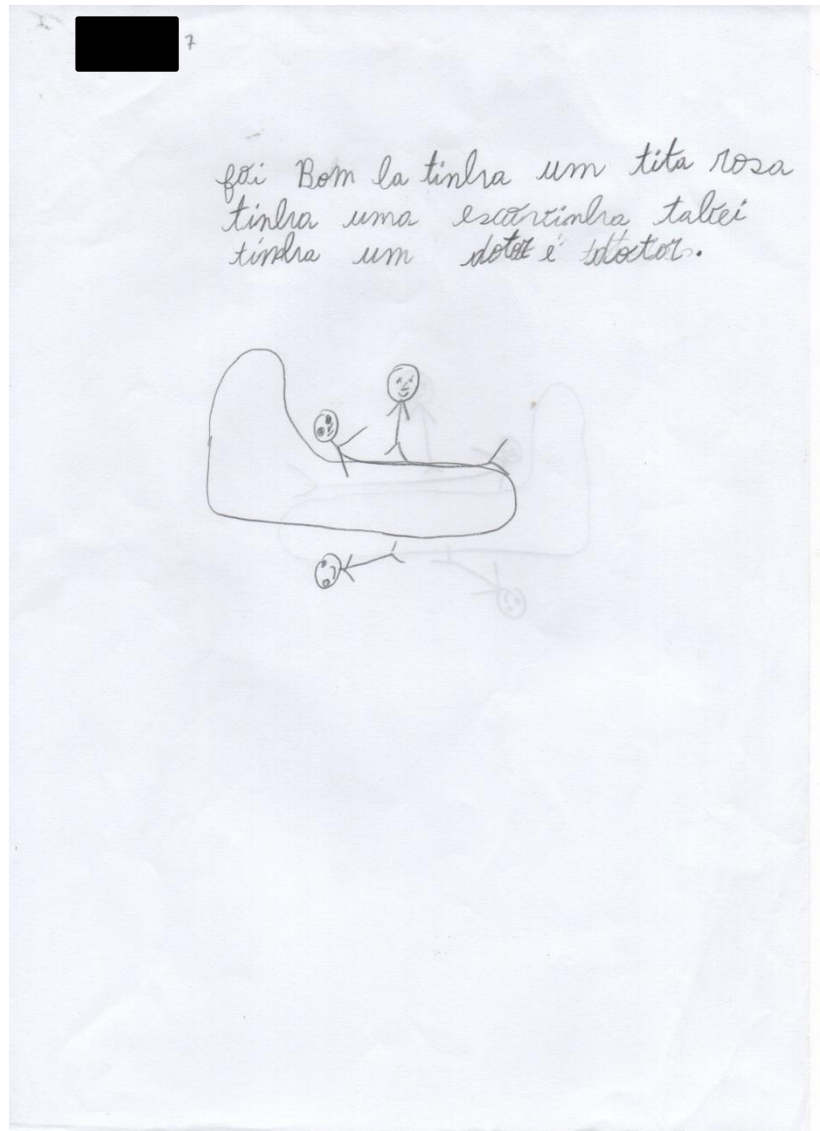 7
foi Bom la tinha um tita rosa
tinha uma escorrinha tabei
tinha um é doctor.